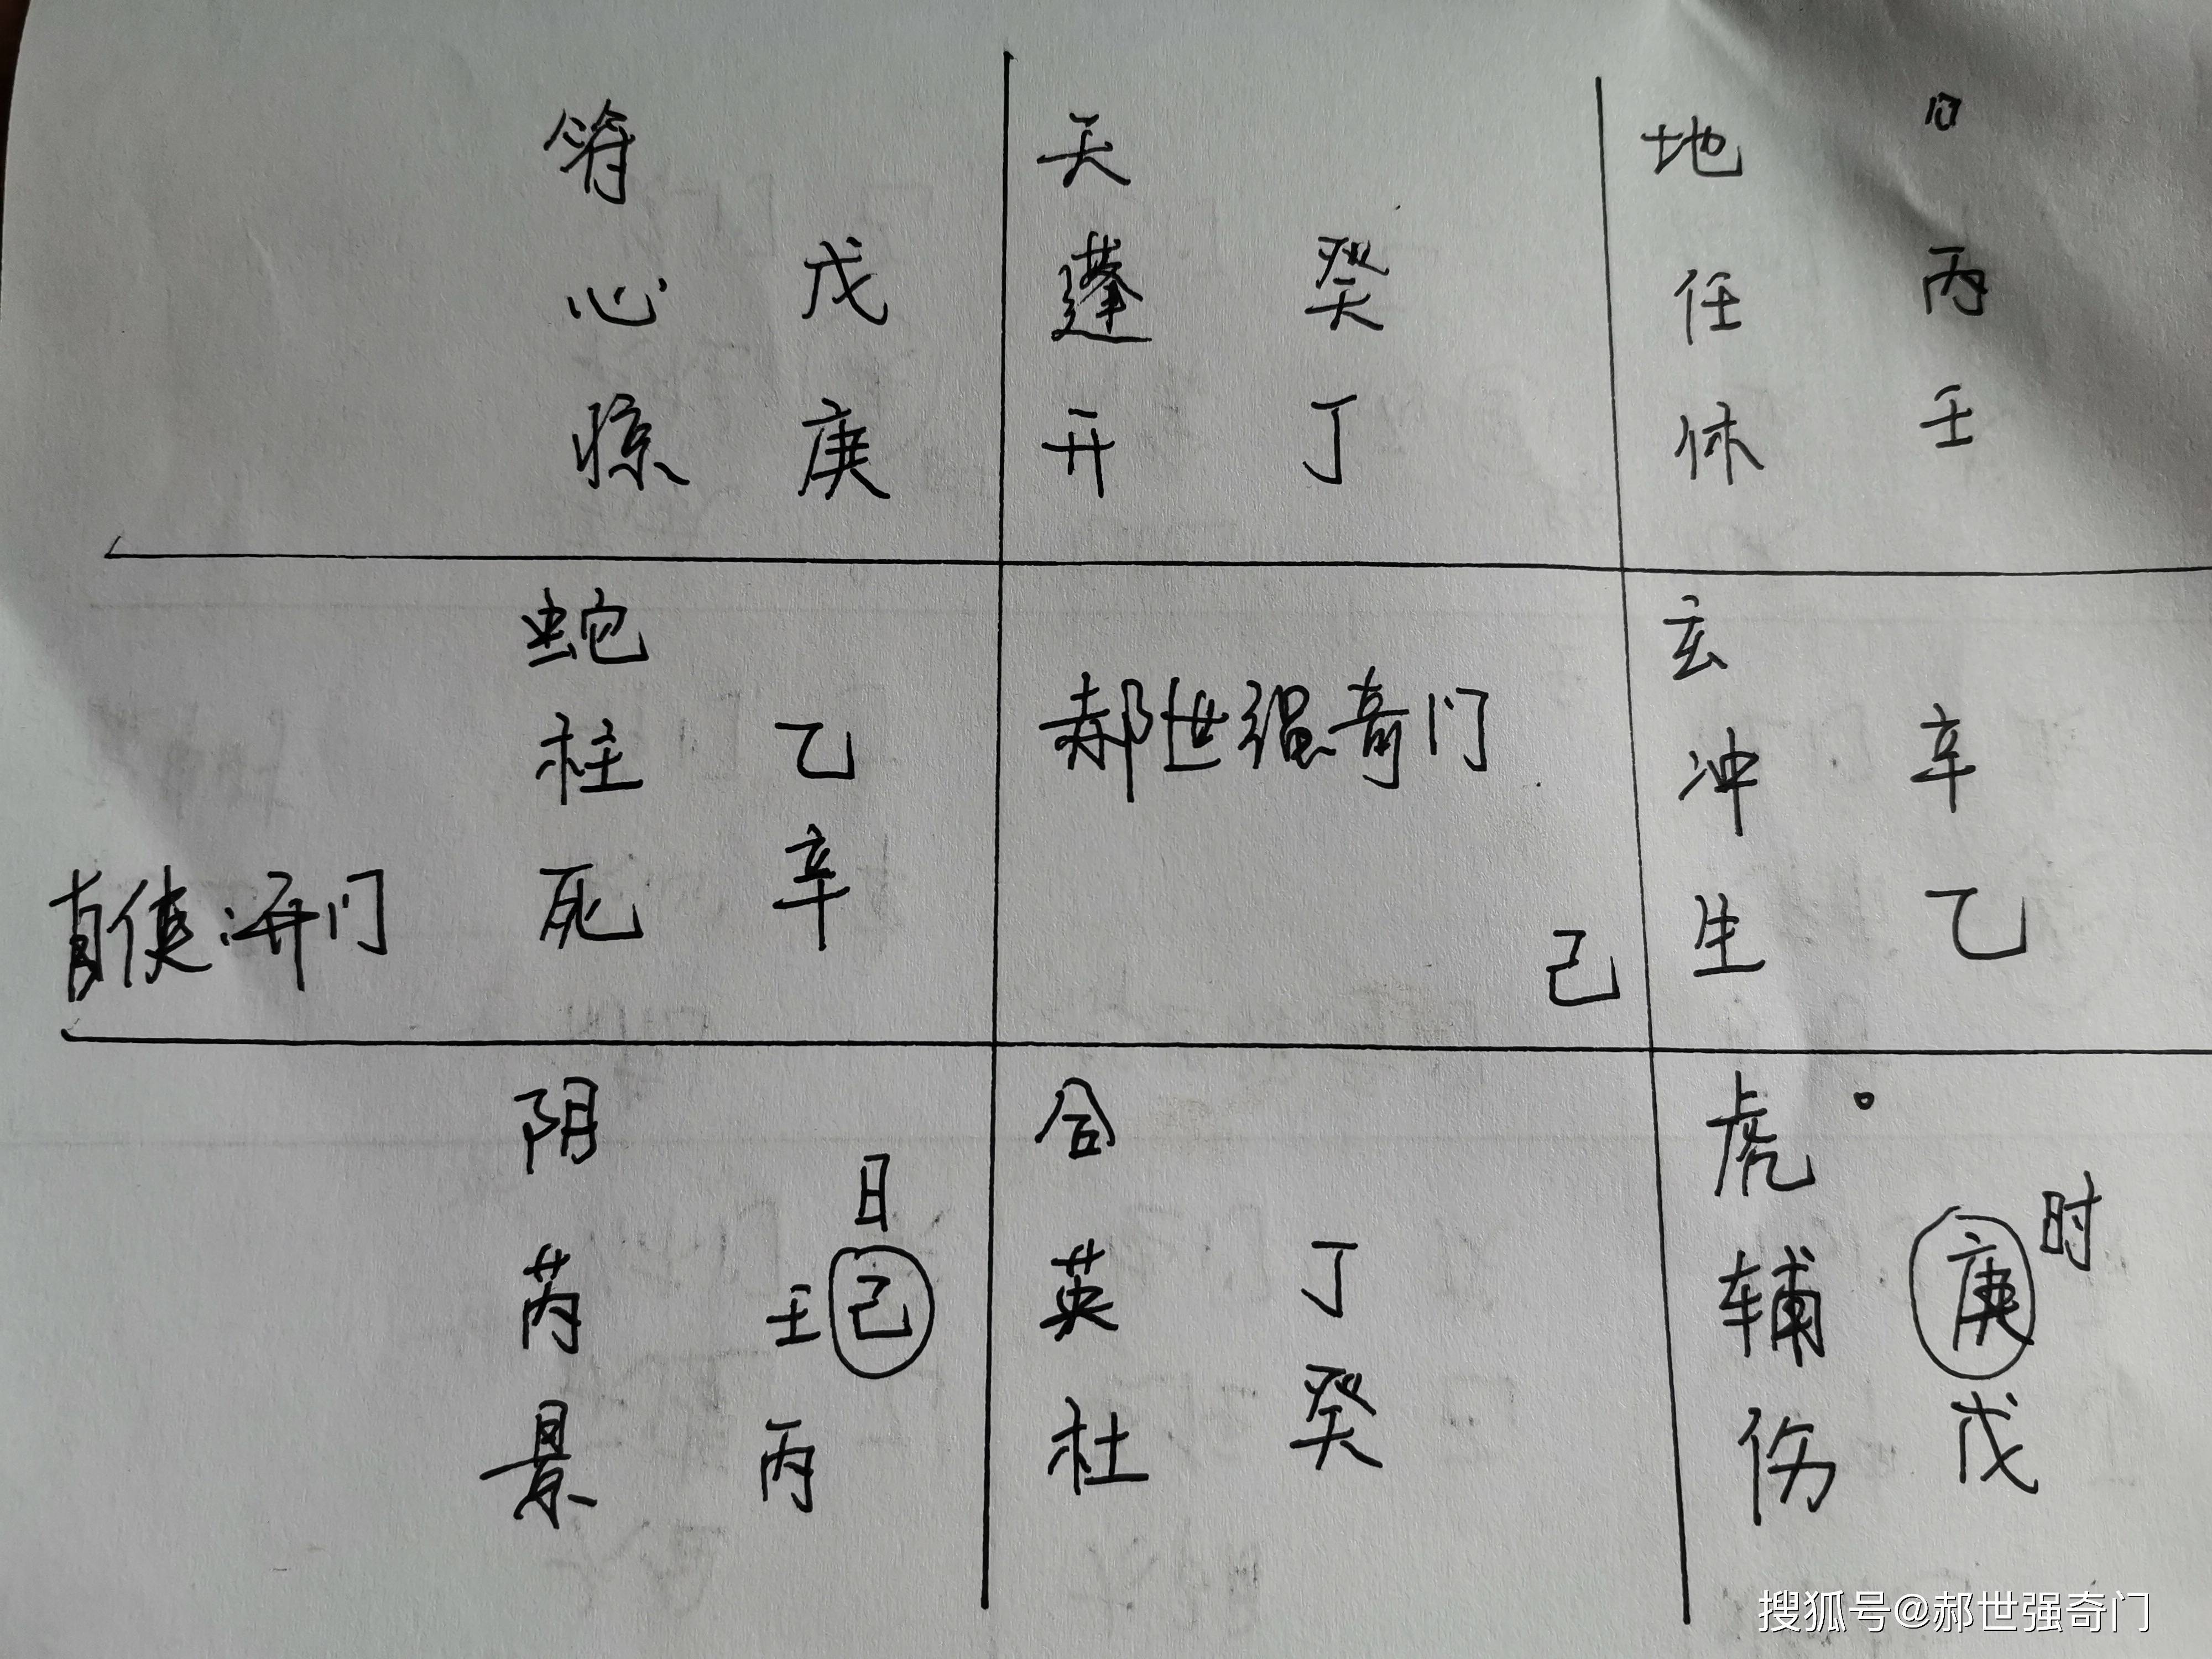 符
心 戊
惊 庚
天
蓬 癸
开 丁
地
任 丙
休 壬
蛇
柱 乙
死 辛
直使:开门
郝世强奇门
己
玄
冲 辛
生 乙
阴
日
芮 壬 己
景 丙
合
英 丁
杜 癸
虎
时
辅 庚
伤 戊
搜狐号@郝世强奇门